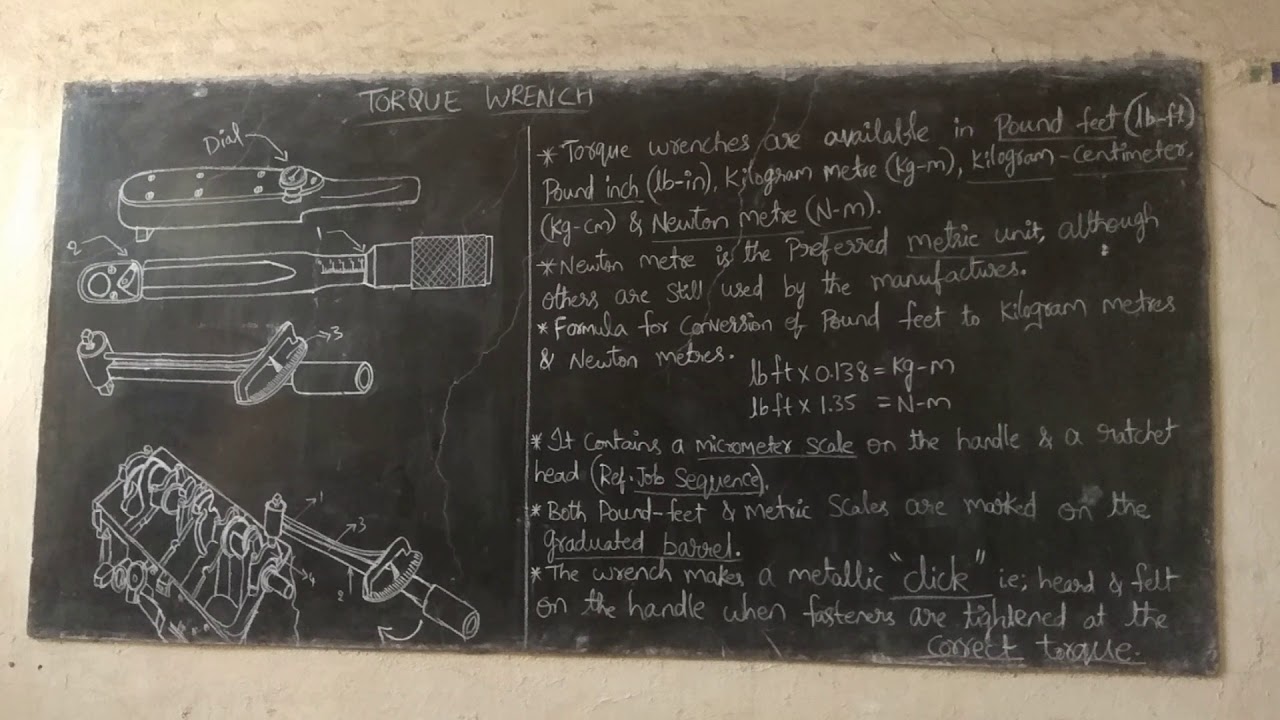 TORQUE WRENCH
Dial
1
2
3
1
3
2
4
* Torque wrenches are available in Pound feet (lb-ft)
Pound inch (lb-in), Kilogram metre (kg-m), Kilogram-Centimeter,
(kg-cm) & Newton Metre (N-m).
* Newton metre is the Preferred metric unit, although
others are still used by the manufactures.
* Formula for Conversion of Pound feet to Kilogram metres
& Newton metres.
lb ft x 0.138 = kg-m
lb ft x 1.35 = N-m
* It Contains a micrometer scale on the handle & a ratchet
head (Ref. Job Sequence).
* Both Pound-feet & Metric Scales are marked on the
graduated barrel.
* The wrench makes a metallic "click" ie; heard & felt
on the handle when fasteners are tightened at the
correct torque.